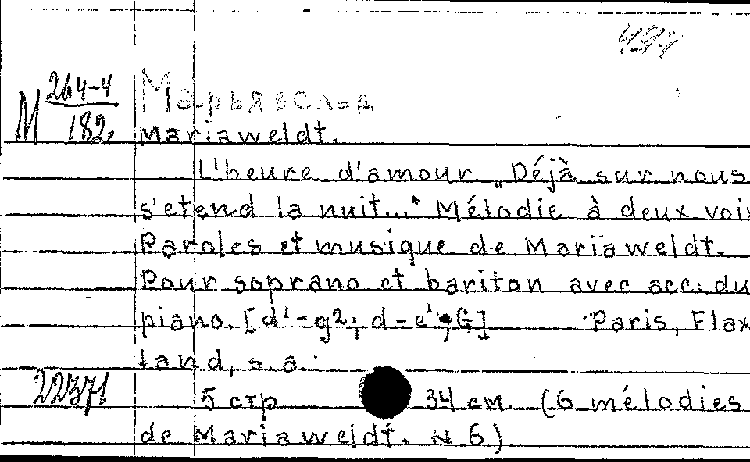 М 264-4
182.
Марьявельд
Mariaweldt.
L'heure d'amour „Déjà sur nous
s'etend la nuit..." Mélodie à deux voi
Paroles et musique de Mariaweldt.
Pour soprano et bariton avec acc. du
piano. [d¹-g²; d-e¹; G] Paris, Flax
land, s.a.
22371
5 стр 34 см. (6 mélodies
de Mariaweldt. N 6)